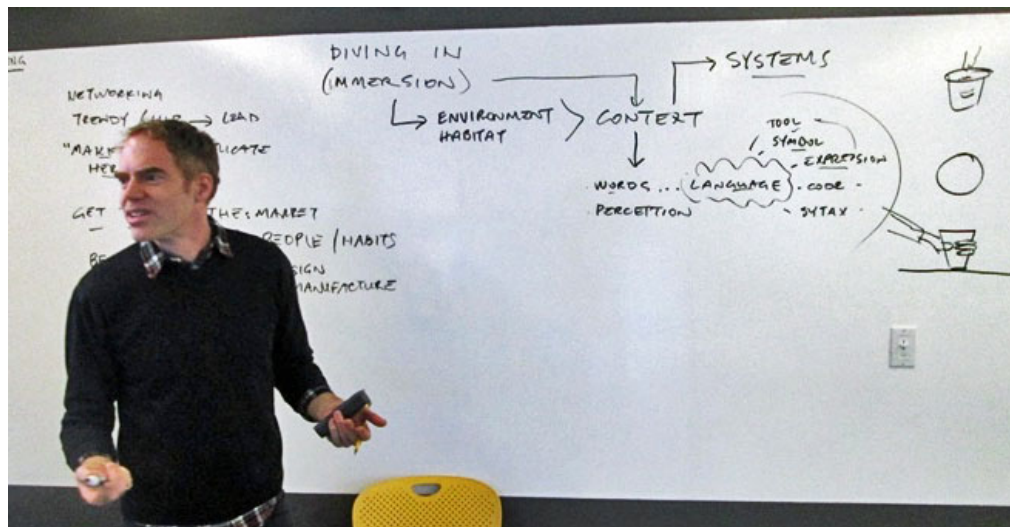 NG
NETWORKING
TRENDY / → LEAD
"MAKE ICATE
HER
GET THE: MARKET
PEOPLE / HABITS
BE SIGN
MANUFACTURE
DIVING IN
(IMMERSION)
ENVIRONMENT
HABITAT
CONTEXT
SYSTEMS
WORDS... LANGUAGE
PERCEPTION
TOOL
SYMBOL
EXPRESSION
CODE
SYTAX